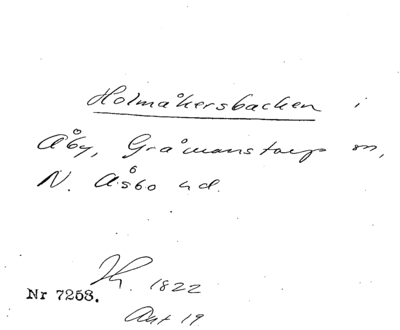 Holmåkersbacken i
Åby, Gråmanstorp sn,
N. Åsbo hd.
1822
Nr 7258.
Akt 19